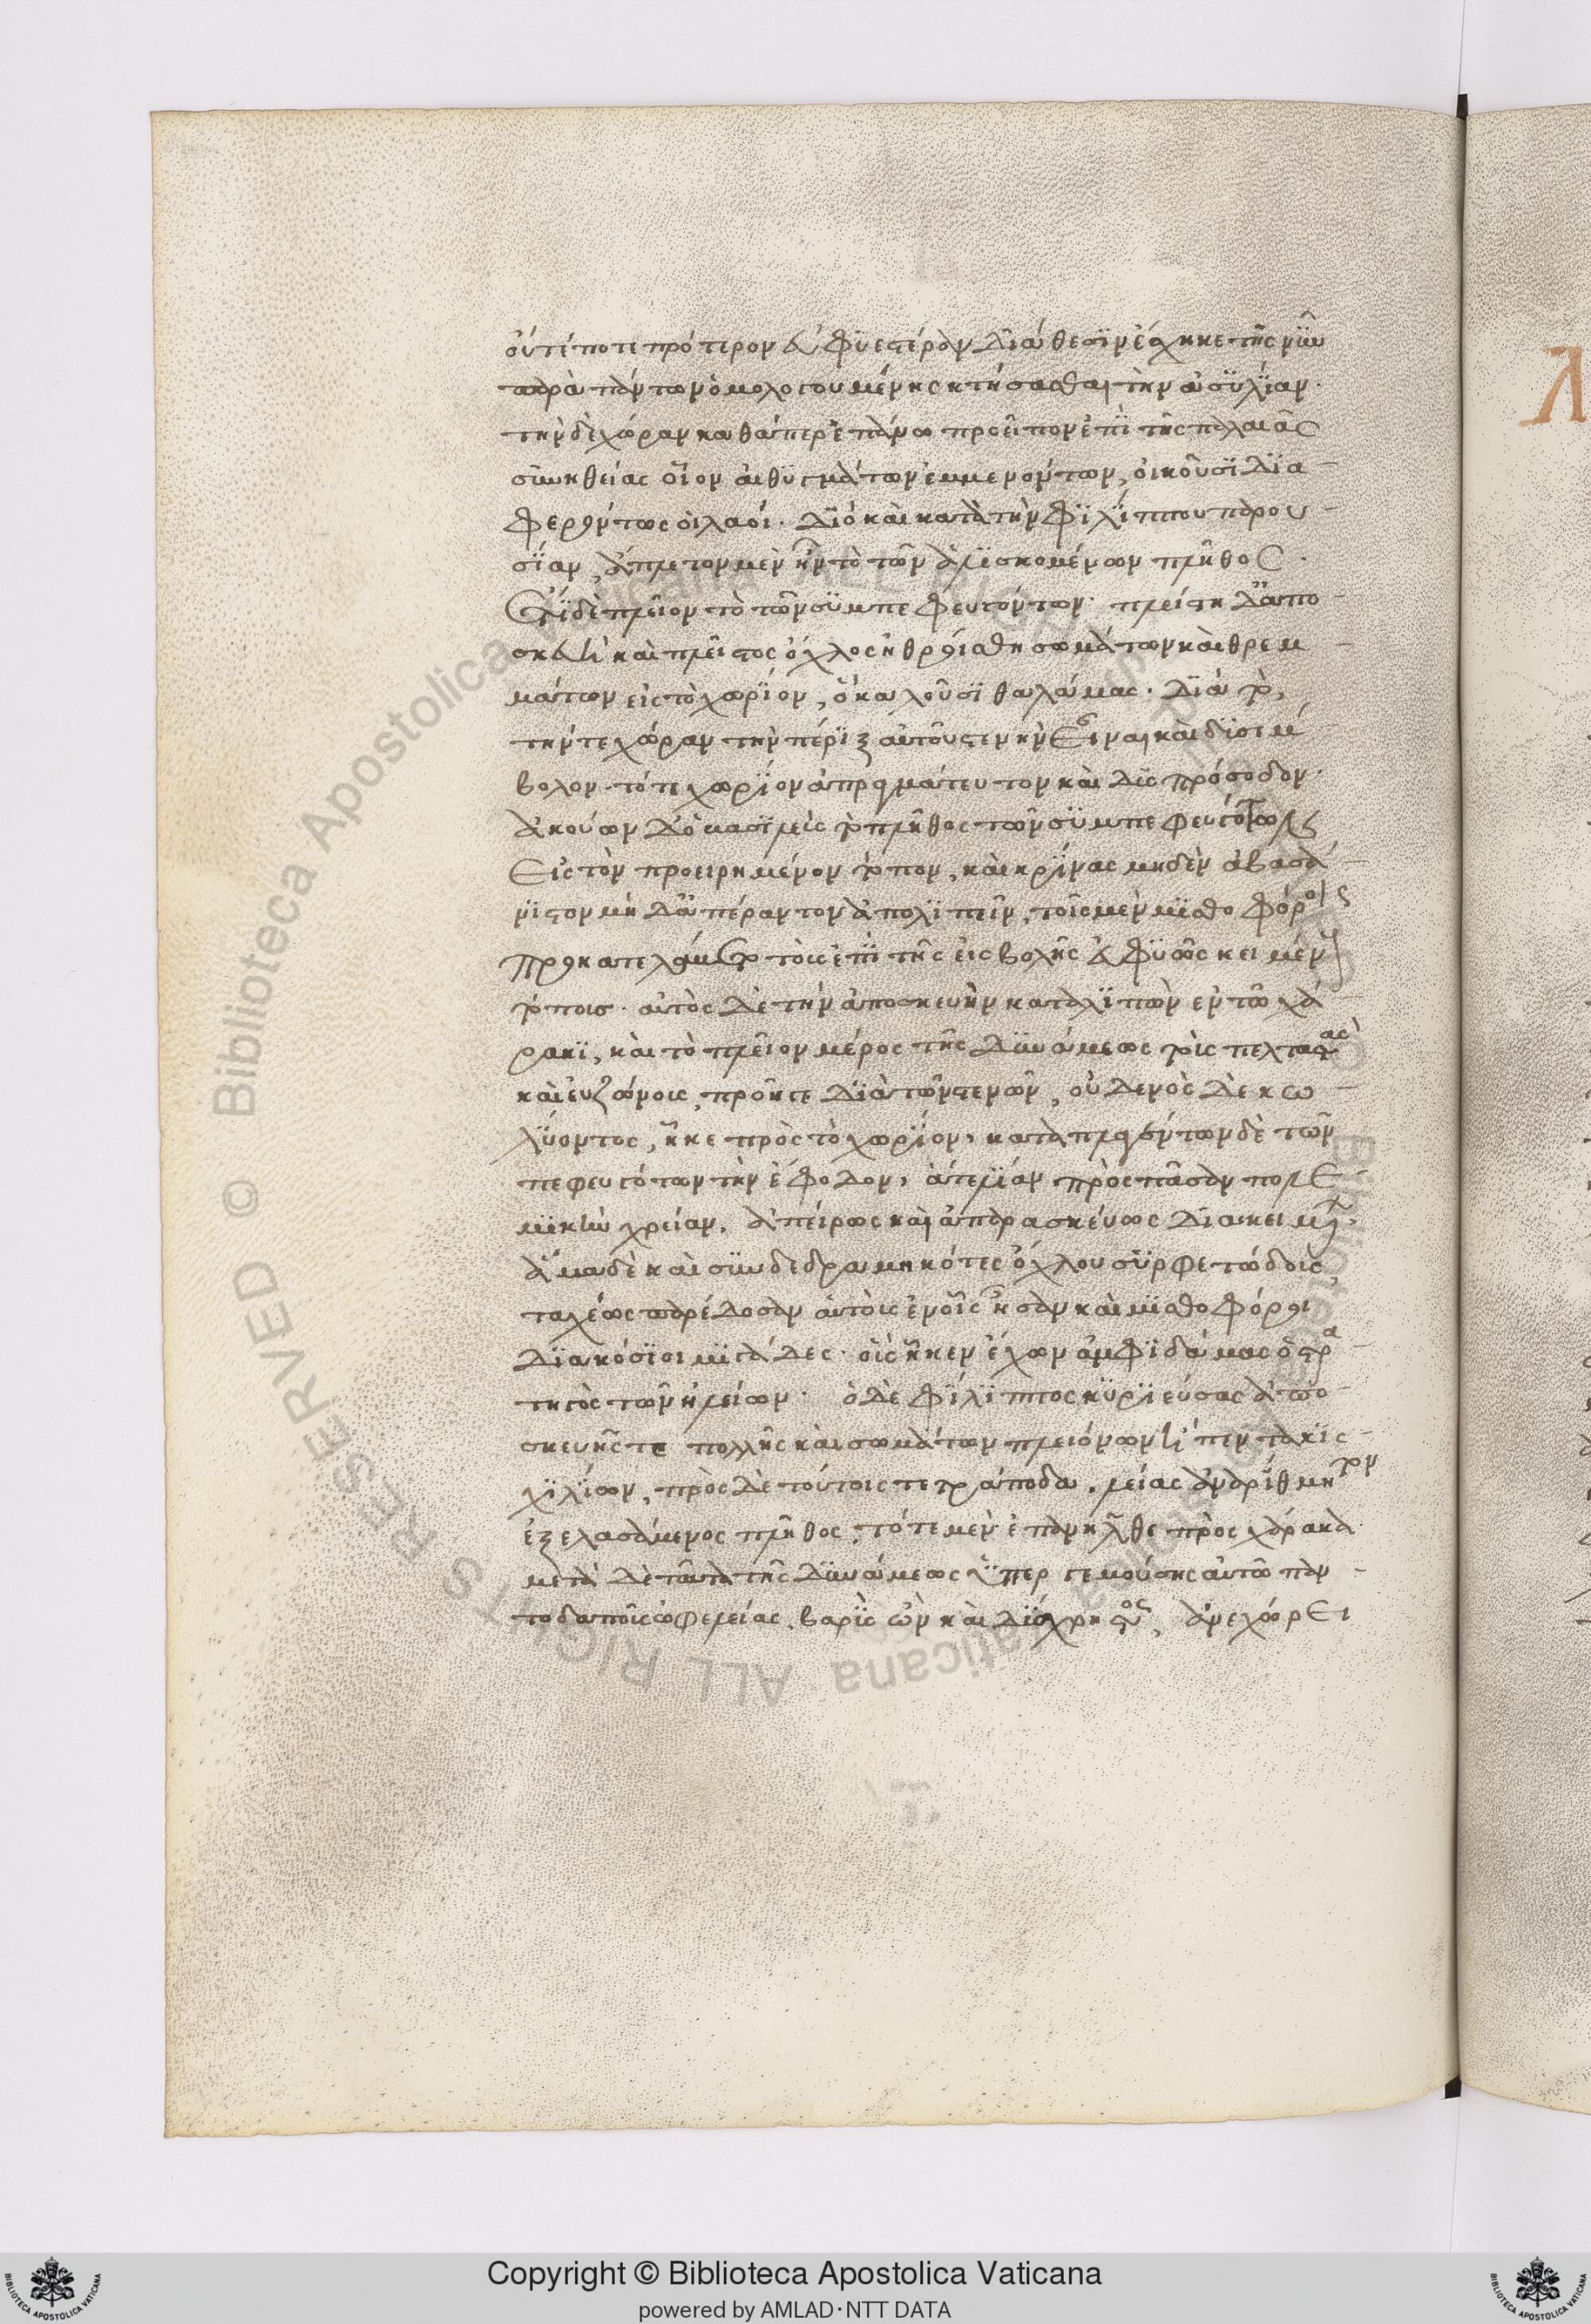 οὔτέ ποτε πρότερον εὐφυεστέραν διάθεσϊν ἔσχηκε τῆς νῦν
παρὰ πάντων ὁμολογουμένης κτήσασθαι τὴν ἀσϋλΐαν.
τὴν δὲ χώραν καθάπερ ἐπάνω προεῖπον ἐπῒ τῆς παλαιᾶς
συνηθείας οἷον αἰθϋγμάτων ἐμμενόντων, οἰκοῦσϊ δϊα
φερόντως οἱ λαοί. δϊὸ καὶ κατὰ τὴν Φϊλΐππου παρου
σΐαν, ἄπλετον μὲν ἦν τὸ τῶν ἁλϊσκομένων πλῆθος.
ἔτϊ δὲ πλεῖον τὸ τῶν σϋμπεφευγότων. πλείστη δ' ἀπο
σκευὴ καὶ πλεῖστος ὄχλος ἠθροίσθη σωμάτων καὶ θρεμ
μάτων εἰς τὸ χωρΐον, ὃ καλοῦσϊ θαλάμας. δϊὰ τὸ,
τήν τε χώραν τὴν πέρϊξ αὐτοῦ στενὴν εἶναι καὶ δϋσέμ
βολον. τό τε χωρΐον ἀπραγμάτευτον καὶ δϋσπρόσοδον.
ἀκούων δ' ὁ βασϊλεὺς τὸ πλῆθος τῶν σϋμπεφευγότων
εἰς τὸν προειρημένον τόπον, καὶ κρΐνας μηδὲν ἀβασά
νϊστον μηδ' ἀπέραντον ἀπολϊπεῖν, τοῖς μὲν μϊσθοφόροις
προκατελάβετο τοὺς ἐπῒ τῆς εἰσβολῆς εὐφϋῶς κειμέν
τόπους. αὐτὸς δὲ τὴν ἀποσκευὴν καταλϊπὼν ἐν τῷ χά
ρακϊ, καὶ τὸ πλεῖον μέρος τῆς δϋνάμεως τοὺς πελταστὰς
καὶ εὐζώνοις, προῆγε δϊὰ τῶν στενῶν, οὐδενὸς δὲ κω
λΰοντος, ἧκε πρὸς τὸ χωρΐον, καταπλαγέντων δὲ τῶν
πεφευγότων τὴν ἔφοδον, ἅτε λΐαν πρὸς πᾶσαν πολε
μϊκὴν χρείαν, ἀπείρως καὶ ἀπαρασκεύως διακειμ
ἅμα δὲ καὶ σϋνδεδραμηκότες ὄχλου σϋρφετώδους
ταχέως παρέδοσαν αὑτούς ἐν οἷς ἦσαν καὶ μϊσθοφόροι
δϊακόσϊοι μϊγάδες. οὓς ἧκεν ἔχων ἀμφϊδάμας ὁ στρα
τηγὸς τῶν ἠλείων. ὁ δὲ Φΐλϊππος κϋρϊεύσας ἀπο
σκευῆς τε πολλῆς καὶ σωμάτων πλειόνων ἢ πεντακϊς
χϊλΐων, πρὸς δὲ τούτοις τετράποδα. λείας ἀναρΐθμητον
ἐξελασάμενος πλῆθος, τότε μὲν ἐπανῆλθε πρὸς χάρακα
μετὰ δὲ ταῦτα τῆς δϋνάμεως ὑπὲρ γεμούσης αὐτῷ παν
τοδαποῖς ὠφελείας, βαρϋς ὢν καὶ δΰσχρηστος, ἀνεχώρει
Copyright © Biblioteca Apostolica Vaticana
powered by AMLAD·NTT DATA